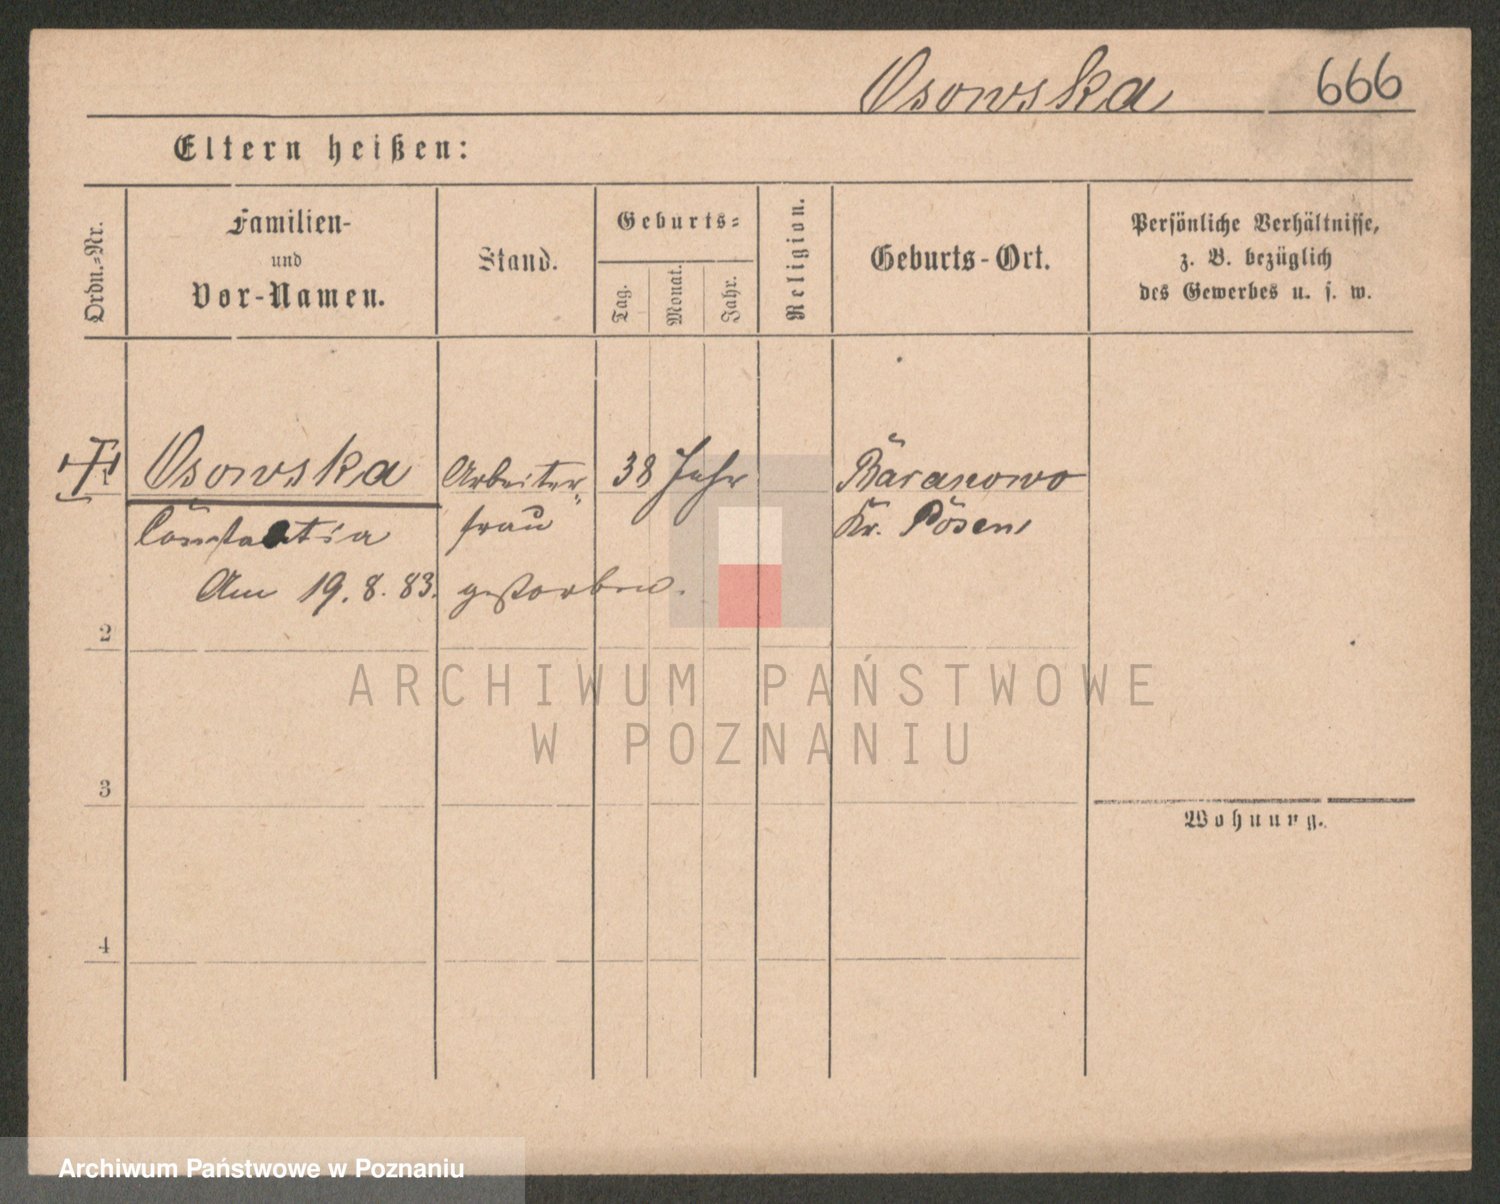 Osowska 666
Eltern heißen:
Ordn.-Nr.
Familien-
und
Vor-Namen.
Stand.
Geburts-
Tag.
Monat.
Jahr.
Religion.
Geburts-Ort.
Persönliche Verhältnisse,
z. B. bezüglich
des Gewerbes u. s. w.
Osowska Arbeiter 38 Jahr Baranowo
Constantia frau Kr. Posen
Am 19. 8. 83. gestorben.
2
3
Wohnung.
4
ARCHIWUM PAŃSTWOWE
W POZNANIU
Archiwum Państwowe w Poznaniu